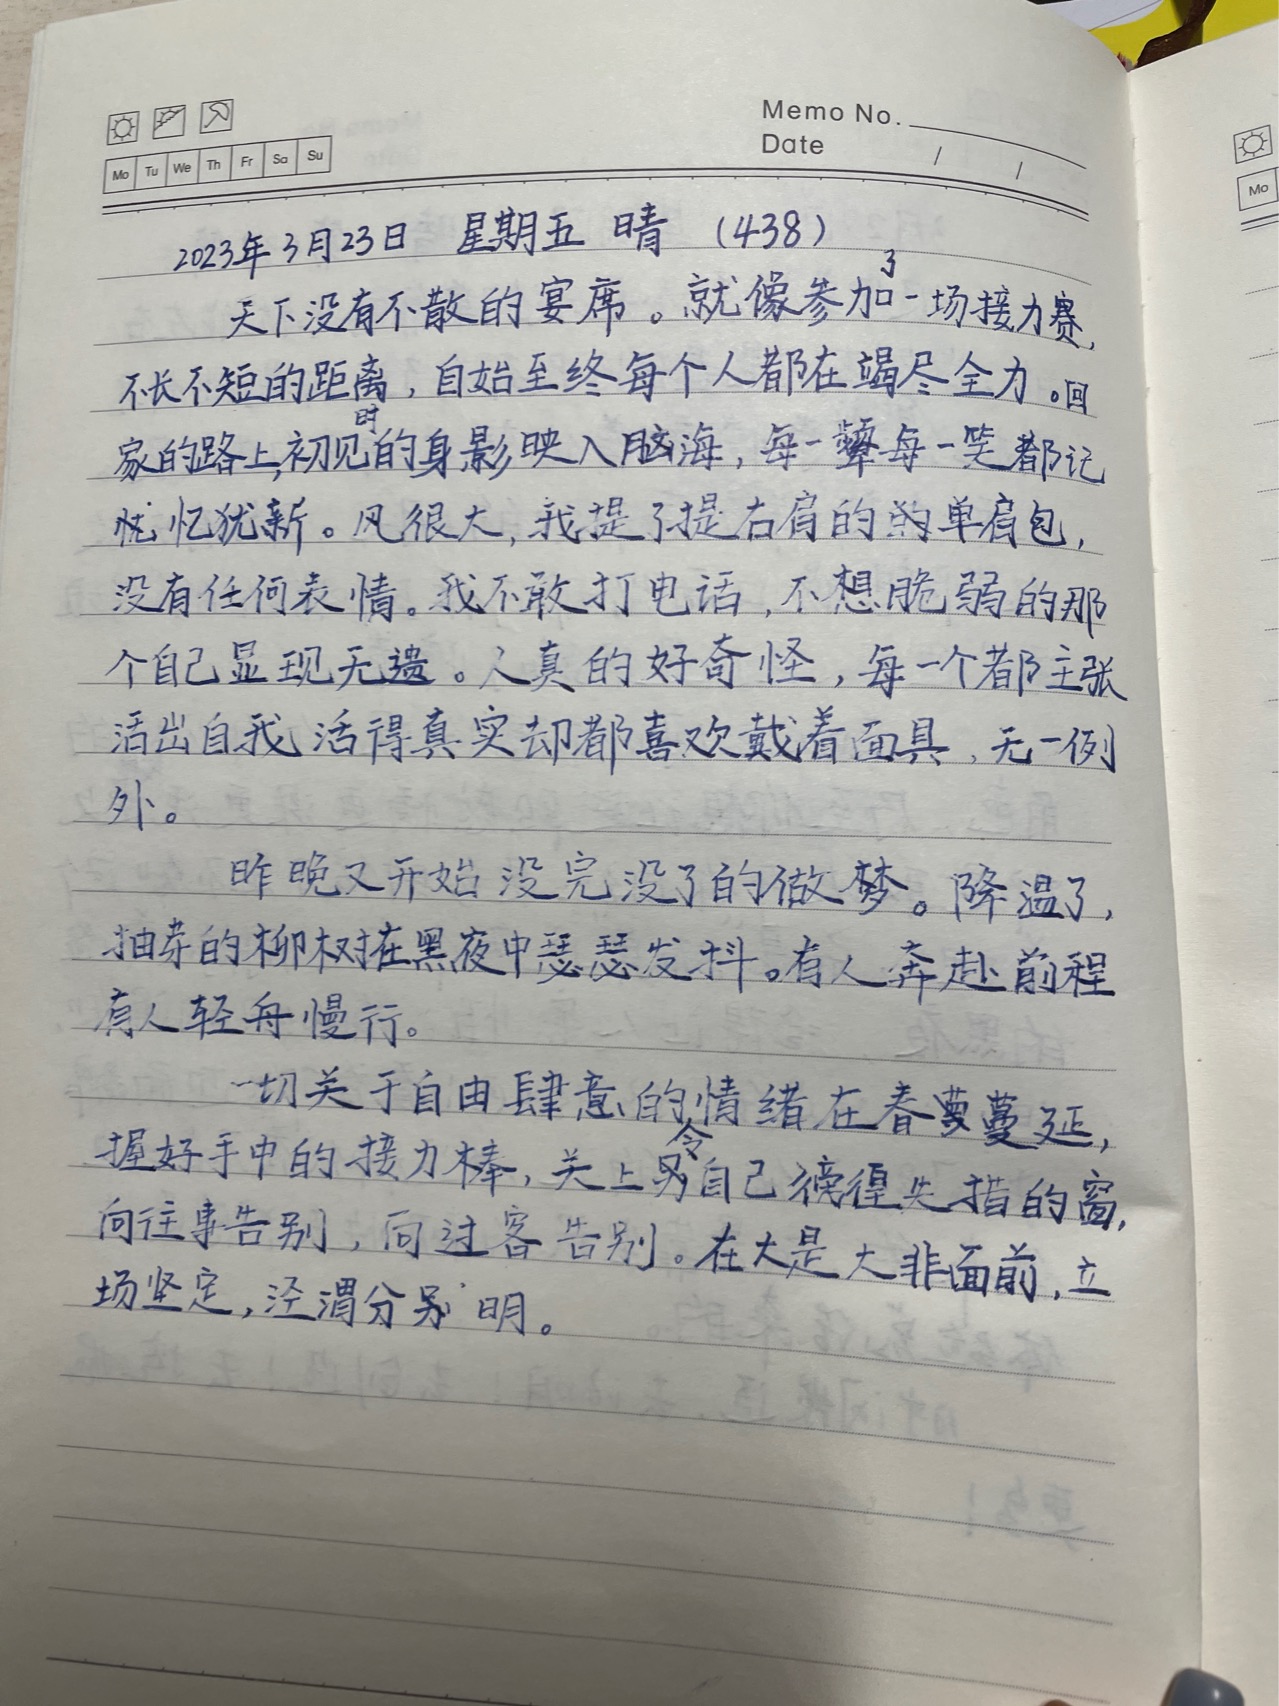 Memo No.
Date / /
Mo Tu We Th Fr Sa Su
Mo
2023年3月23日 星期五 晴 (438)
天下没有不散的宴席。就像参加了一场接力赛,
不长不短的距离,自始至终每个人都在竭尽全力。回
家的路上,初见时的身影映入脑海,每一颦每一笑都记
忆犹新。风很大,我提了提右肩的单肩包,
没有任何表情。我不敢打电话,不想脆弱的那
个自己显现无遗。人真的好奇怪,每一个都主张
活出自我,活得真实却都喜欢戴着面具,无一例
外。
昨晚又开始没完没了的做梦。降温了,
抽芽的柳树在黑夜中瑟瑟发抖。有人奔赴前程
有人轻舟慢行。
一切关于自由肆意的情绪在春蔓延,
握好手中的接力棒,关上令自己徬徨失措的窗,
向往事告别,向过客告别。在大是大非面前,立
场坚定,泾渭分明。